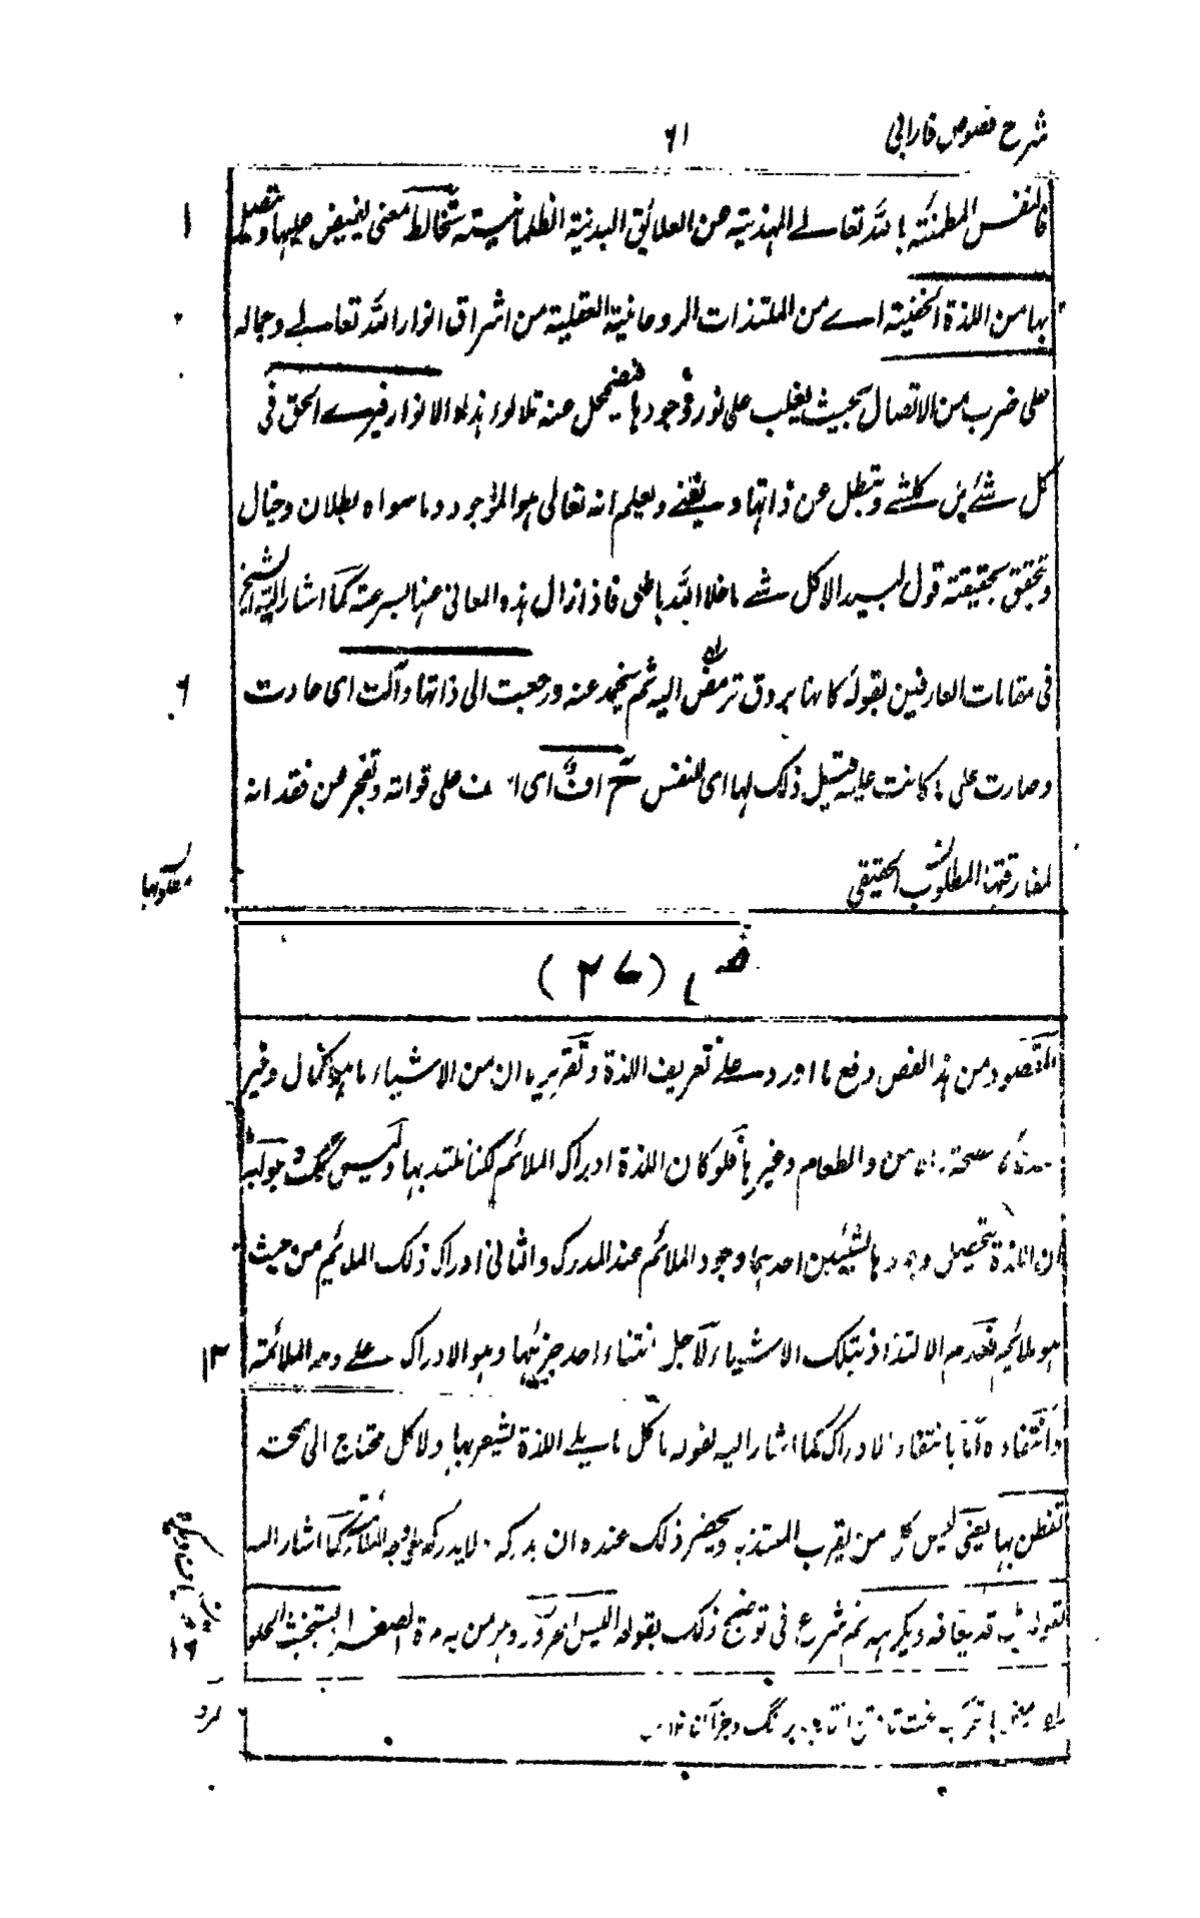 شرح فصوص فارابی
۶۱
فالنفس المطمئنة بالله تعالے المهذبته عن العلائق البدنیة الظلمانیة ستخالط معنی یفیض علیها ویتصل
۱
بها من اللذة الخفیة اے من الملتذات الروحانیة العقلیة من اشراق انوار الله تعالے وجماله
علی ضرب من الاتصال بحیث یغلب علی نور وجودها فیضمحل عنه تلالوء هذه الانوار فیرے الحق فی
کل شئے بل کلشے وتبطل عن ذاتها ویفنے ویعلم انه تعالی هو الموجود وما سواه بطلان وخیال
ویحقق بحقیقته قول لبید الاکل شے ما خلا الله باطل فاذا زال هذه المعانی عنها بسرعته کما اشار الیه الشیخ
فی مقامات العارفین بقوله کانها بروق ترمض الیه ثم یخمد عنه ورجعت الی ذاتها وآلت ای عادت
۶
وصارت علی ما کانت علیه قبیل ذلک لها ای للنفس ح اف ای علی قواته وتفجر عن فقدانه
لمفارقتها المطلوب الحقیقی
فصل (۲۷)
المقصود من هذا الفص دفع ما اورد علے تعریف اللذة وتقریره ان من الاشیاء ما هو کمال وخیر
من والطعام وغیرها فلو کان اللذة ادراک الملائم لکنا نلتذ بها ولیس کذلک جوابه
ان اللذة یتحصل وجودها لشیئین احدهما وجود الملائم عند المدرک والثانی ادراک ذلک الملائم من حیث
هو ملائم فعدم الالتذاذ بتلک الاشیاء لاجل انتفاء احد جزئیها وهو الادراک علے وجه الملائمة
۱۳
وانتفاءه اما بانتفاء الادراک کما اشار الیه بقوله ما کل ما یلے اللذة یشعر بها ولا کل محتاج الی صحته
تفطن بها یعنی لیس کل من یقرب المستلذ به ویحضر ذلک عنده ان یدرکه لا یدرکه علی وجه الملائمة کما اشار الیه
بقوله بل قد یعافه ویکرهه ثم شرع فی توضیح ذلک بقوله الیس الممرور وهو من به مرة الصفراء یستخبث الحلو